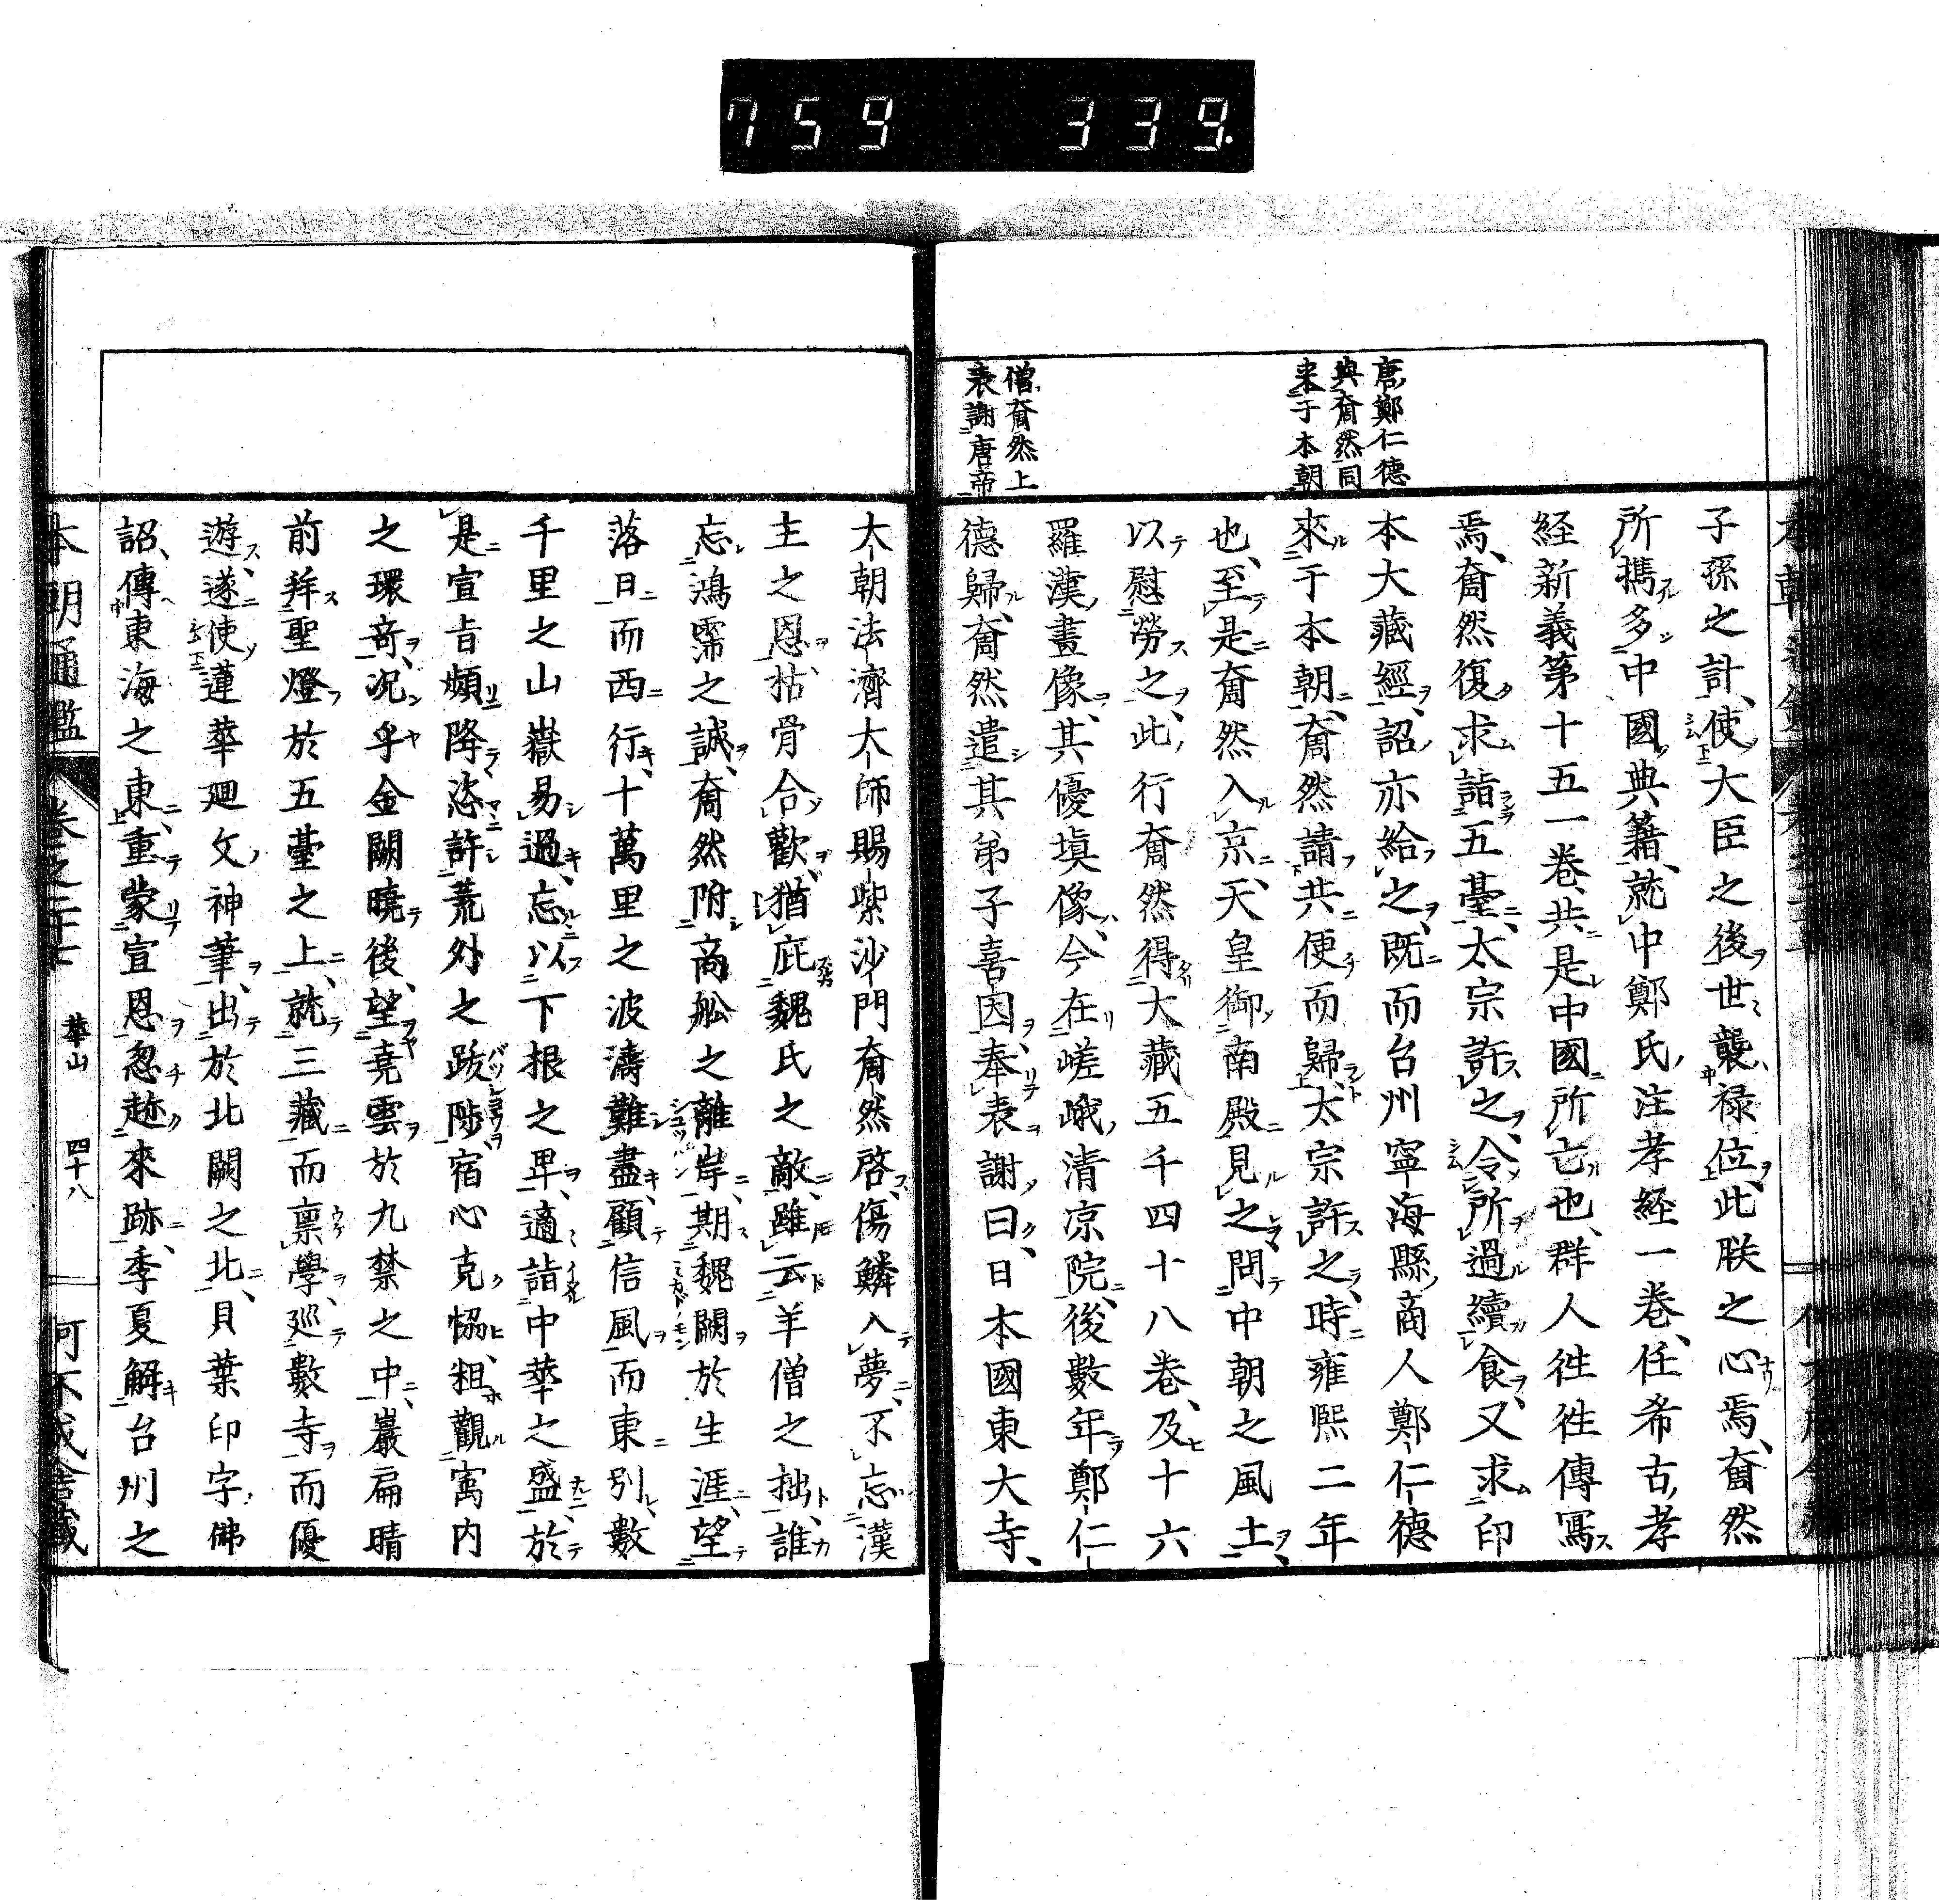 759 339.
唐鄭仁德
與奝然同
来于本朝
僧奝然上
表謝唐帝
子孫之計、使大臣之後世襲禄位、此朕之心焉、奝然
所攜多中國典籍、就中鄭氏注孝経一卷、任希古孝
経新義第十五一卷、共是中國所亡也、群人徃徃傳寫
焉、奝然復求詣五臺、太宗許之、令所過續食、又求印
本大藏經、詔亦給之、既而台州寧海縣商人鄭仁德
來于本朝、奝然請共便而歸、太宗許之、時雍熙二年
也、至是奝然入京、天皇御南殿見之問中朝之風土、
以慰勞之、此行奝然得大藏五千四十八卷、及十六
羅漢畫像、其優填像、今在嵯峨清凉院、後數年鄭仁
德歸、奝然遣其弟子喜因、奉表謝曰、日本國東大寺、
大朝法濟大師賜紫沙門奝然啓、傷鱗入夢、不忘漢
主之恩、枯骨合歡、猶庇魏氏之敵、雖云羊僧之拙、誰
忘鴻霈之誠、奝然附商舩之離岸、期魏闕於生涯、望
落日而西行、十萬里之波濤難盡、顧信風而東別、數
千里之山嶽易過、忘以下根之卑、適詣中華之盛、於
是宣旨頻降、恣許荒外之跋陟、宿心克恊、粗觀寓内
之環竒、況乎金闕曉後、望堯雲於九禁之中、巖扁晴
前、拜聖燈於五臺之上、就三藏而禀學、巡數寺而優
遊、遂使蓮華廻文、神筆出於北闕之北、貝葉印字、佛
詔、傳東海之東、重蒙宣恩、忽趂來跡、季夏解台州之
本朝通鑑 卷之二十七 華山 四十八